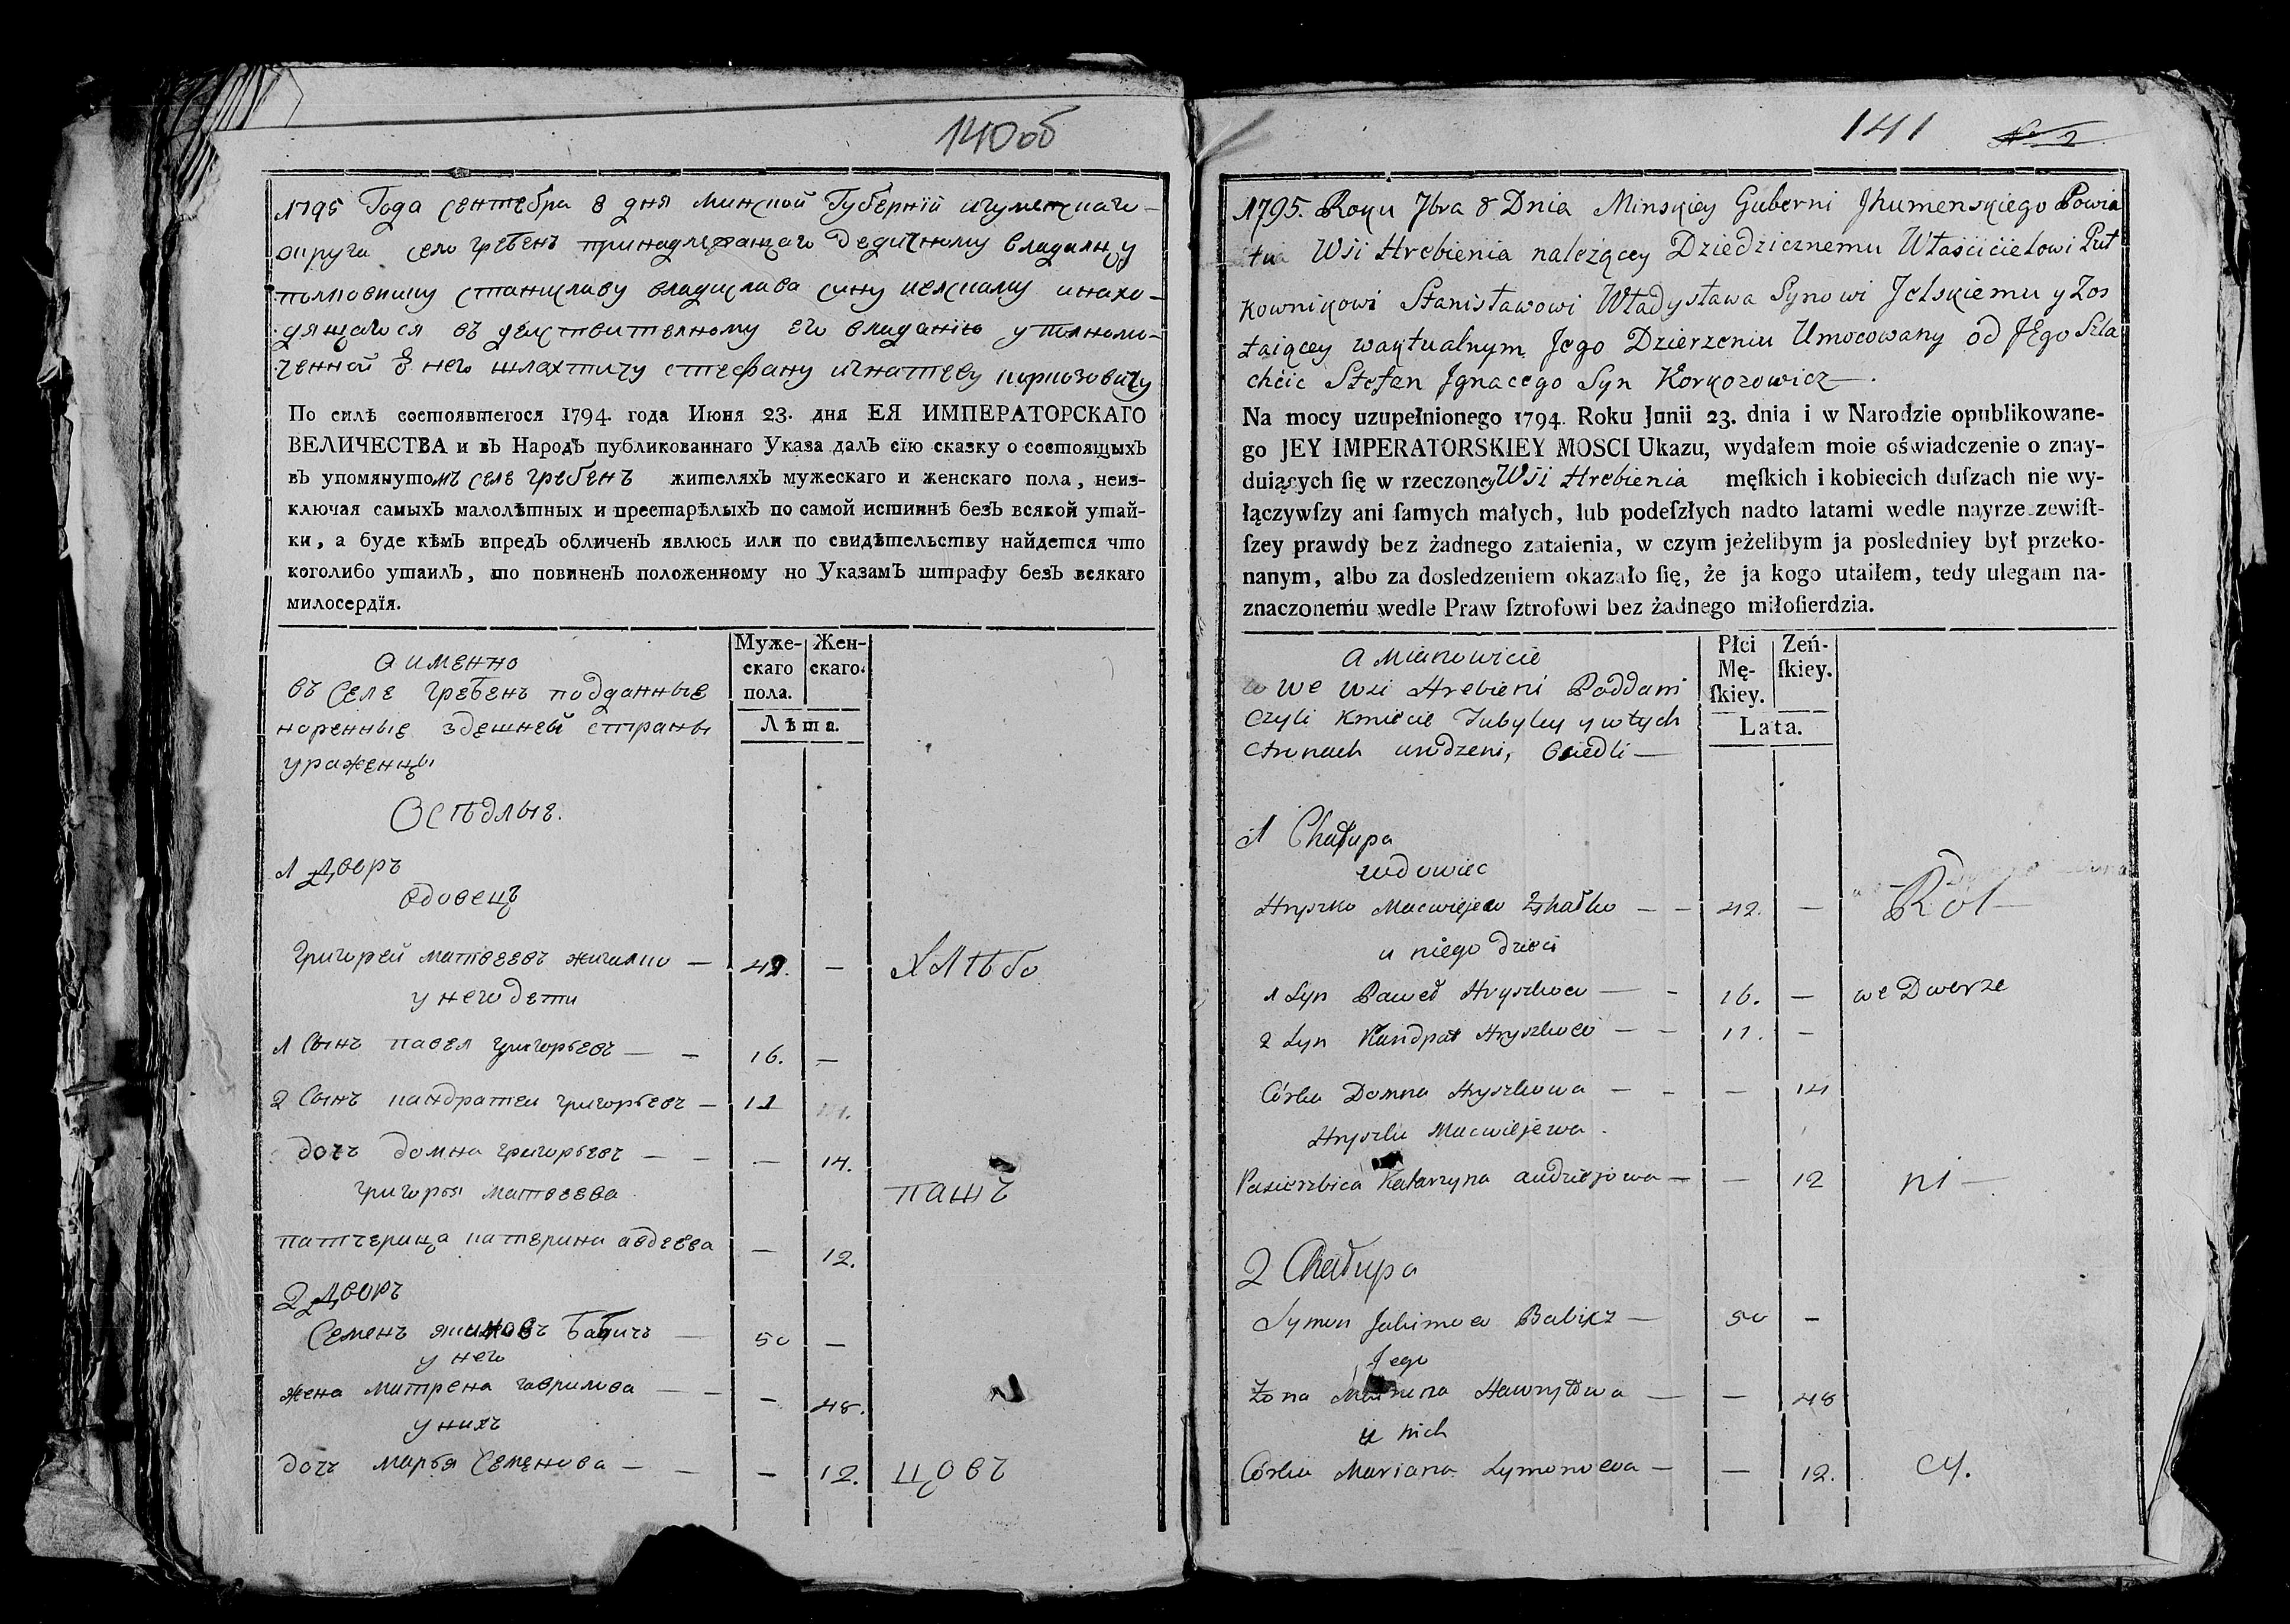 140об
1795 Года сентебра 8 дня минской Губернїи игуменскаго
округи село гребенъ принадлежащаго дедичному владелцу
полковнику станиславу владислава сину иелскому инахо-
дящагося въ действителному его владанїю уполномо-
ченной 8 него шляхтичу стефану игнатеву коркозовичу
По силѣ состоявшегося 1794. года Июня 23. дня ЕЯ ИМПЕРАТОРСКАГО
ВЕЛИЧЕСТВА и въ Народъ публикованнаго Указа далъ сїю сказку о состоящыхъ
въ упомянутомъ селе гребенъ жителяхъ мужескаго и женскаго пола, неиз-
ключая самыхъ малолѣтных и престарѣлыхъ по самой истиннѣ безъ всякой утай-
ки, а буде кѣмъ впредъ обличенъ явлюсь или по свидѣтельству найдется что
коголибо утаилъ, то повиненъ положенному но Указамъ штрафу безъ всякаго
милосердїя.
Муже-
скаго
пола.
Жен-
скаго.
Лѣта.
а именно
въ Селе гребенъ подданные
коренные здешней страны
ураженцы
Осѣдлые.
1 Дворъ
вдовецъ
григорей матвеевъ жигалко — 42. — Хлѣбо
у него дети
1 Сынъ павел григорьевъ — — 16. —
2 Сынъ кандратеи григорьевъ — 11
дочь домна григорьевъ — — — 14.
григорья матвеева пашъ
патчерица катерина авдеева — 12.
2 Дворъ
Семенъ якимовъ бабичъ — 50 —
у него
жена матрена гаврилова — — — 48.
у нихъ
дочь марья Семенова — — — 12. цовъ
141 № 2
1795. Roku 7bra 8 Dnia Minskiey Guberni Jhumenskiego Powia
tu Wsi Hrebienia należącey Dziedzicznemu Właścicielowi Puł
kownikowi Stanisławowi Władysława Synowi Jelskiemu y Zos
taiącey waktualnym Jego Dzierzeniu Umocowany od JEgo Szla
chcic Stefan Jgnacego Syn Korkozowicz —.
Na mocy uzupełnionego 1794. Roku Junii 23. dnia i w Narodzie opublikowane-
go JEY IMPERATORSKIEY MOSCI Ukazu, wydałem moie oświadczenie o znay-
duiących ſię w rzeczoney Wsi Hrebienia męſkich i kobiecich duſzach nie wy-
łączywſzy ani ſamych małych, lub podeſzłych nadto latami wedle nayrzeczewiſt-
ſzey prawdy bez żadnego zataienia, w czym jeżelibym ja posledniey był przeko-
nanym, albo za dosledzeniem okazało ſię, że ja kogo utaiłem, tedy ulegam na-
znaczonemu wedle Praw ſztrofowi bez żadnego miłoſierdzia.
Płci
Mę-
ſkiey.
Zeń-
ſkiey.
Lata.
a Mianowicie
we wsi Hrebieni Poddani
czyli Kmiecie Tubylcy y w tych
Stronach urodzeni, Osiedli —
1 Chałupa
wdowiec
Hryszko Macwiejew Zyhałko — — 42. — Rol —
u niego dzieci
1 Syn Paweł Hryszkow — - 16. — we Dworze
2 Syn Kandrat Hryszkow — — 11. —
Córka Domna Hryszkowa — - — 14
Hryszki Macwiejewa.
Pasierzbica Katarzyna audziejowa — — 12 ni —
2 Chałupa
Symon Jakimow Babicz — 50 —
Jego
Żona Matruna Hawryłowa — — 48
u nich
Córka Mariana Symonowa — — 12. cy.